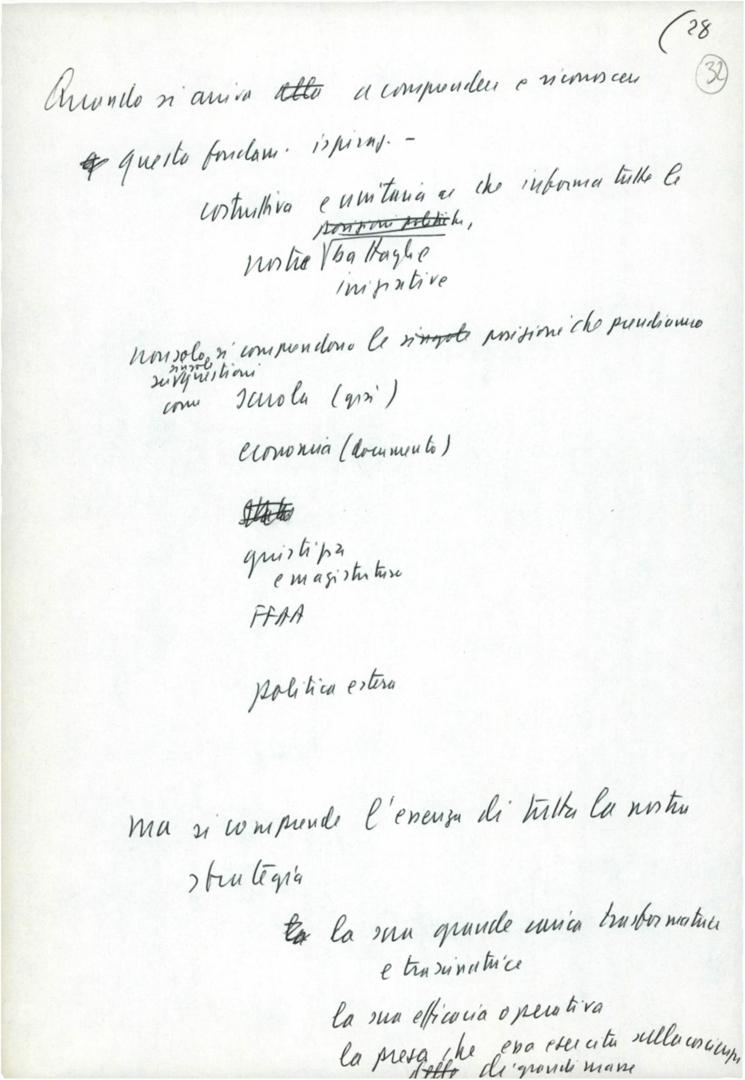 (28
32
Quando si arriva alla a comprendere e riconoscere
questa fondam. ispiraz. –
costruttiva e unitaria che informa tutte le
posizioni politiche,
nostre battaglie
iniziative
non solo si comprendono le singole posizioni che prendiamo
singole
su questioni
come scuola (già)
economia (documento)
giustizia
e magistratura
FFAA
politica estera
ma si comprende l'essenza di tutta la nostra
strategia
la la sua grande carica trasformatrice
e trascinatrice
la sua efficacia operativa
la presa che essa esercita sulla coscienza
delle di grandi masse